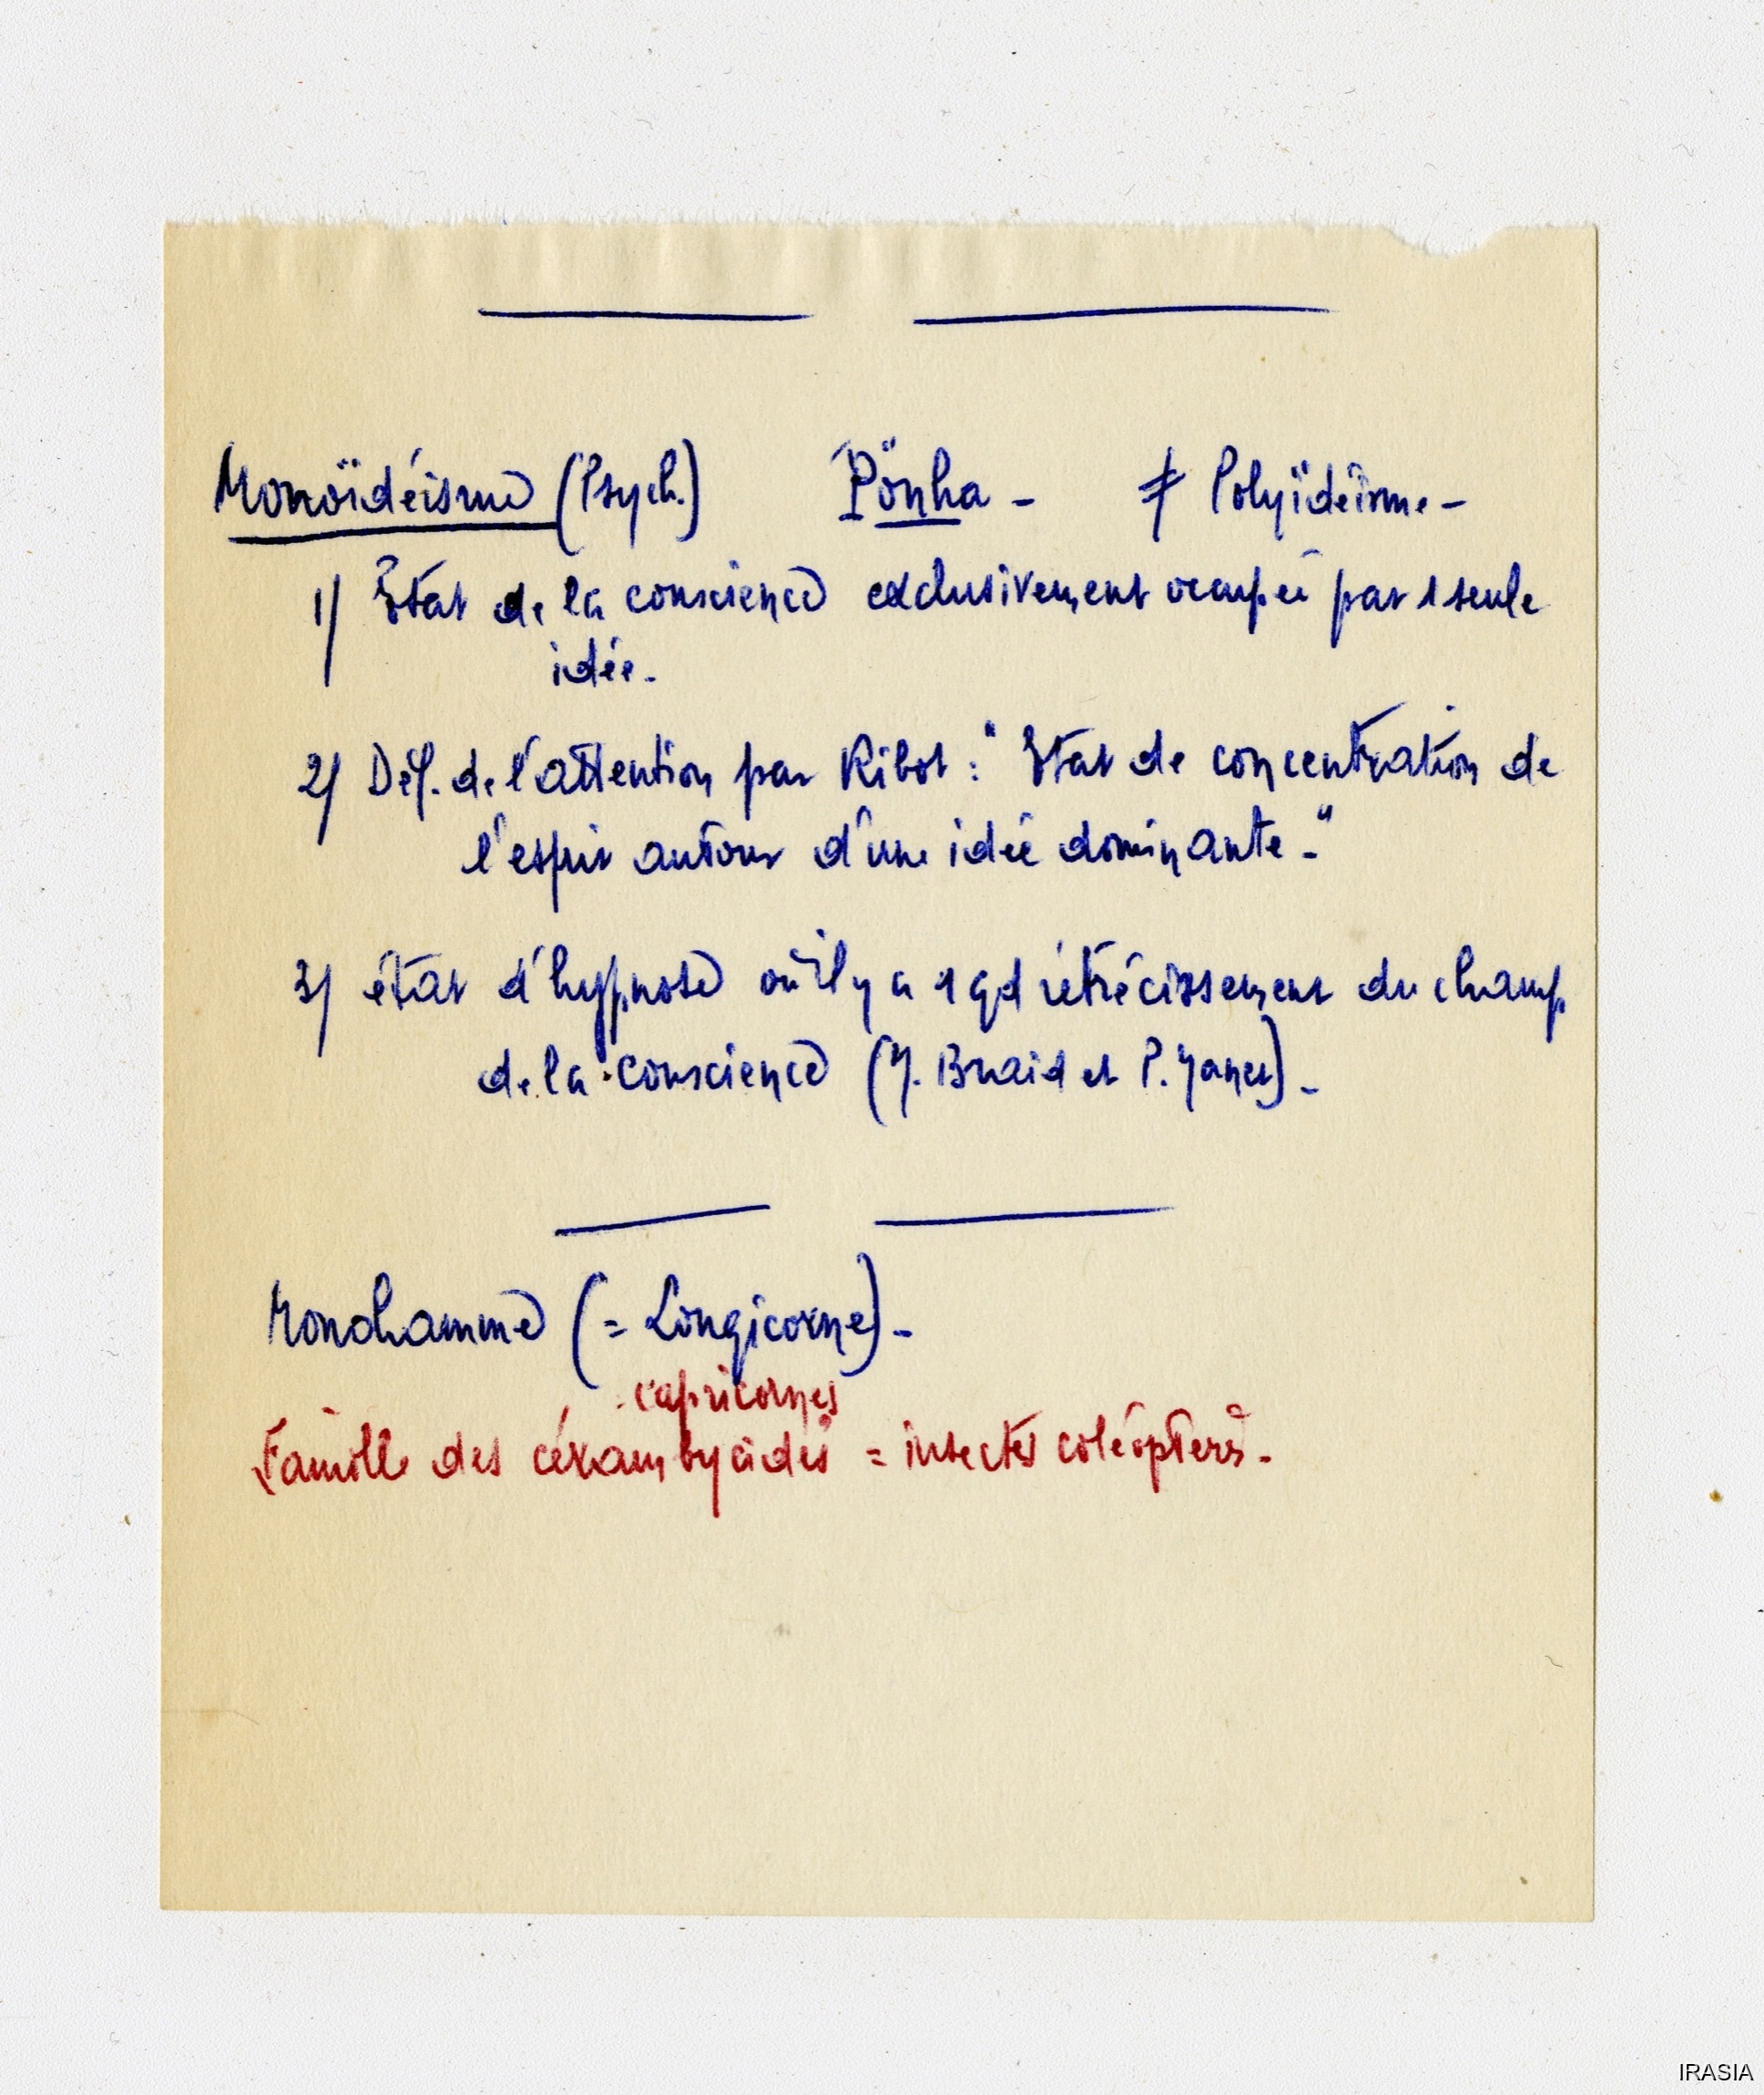 Monoïdéisme (Psych.) Pönha - ≠ Polyïdéisme -
1/ Etat de la conscience exclusivement occupée par 1 seule
idée.
2/ Déf. de l'attention par Ribot : "Etat de concentration de
l'esprit autour d'une idée dominante -"
3/ état d'hypnose où il y a 1 gd rétrécissement du champ
de la conscience (J. Braid et P. Janet) -
Monohamme (= Longicorne) -
capricornes
Famille des cérambycidés = insectes coléoptères -
IRASIA